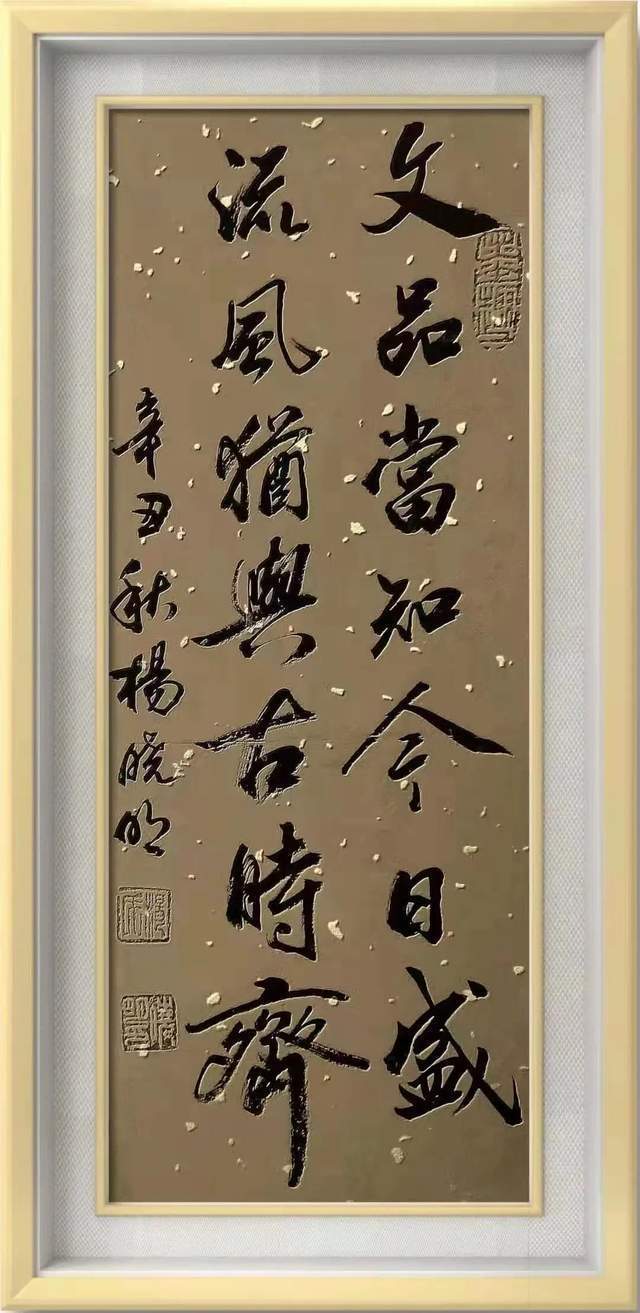 文品當知今日盛
流風猶與古時齊
辛丑秋楊晓明